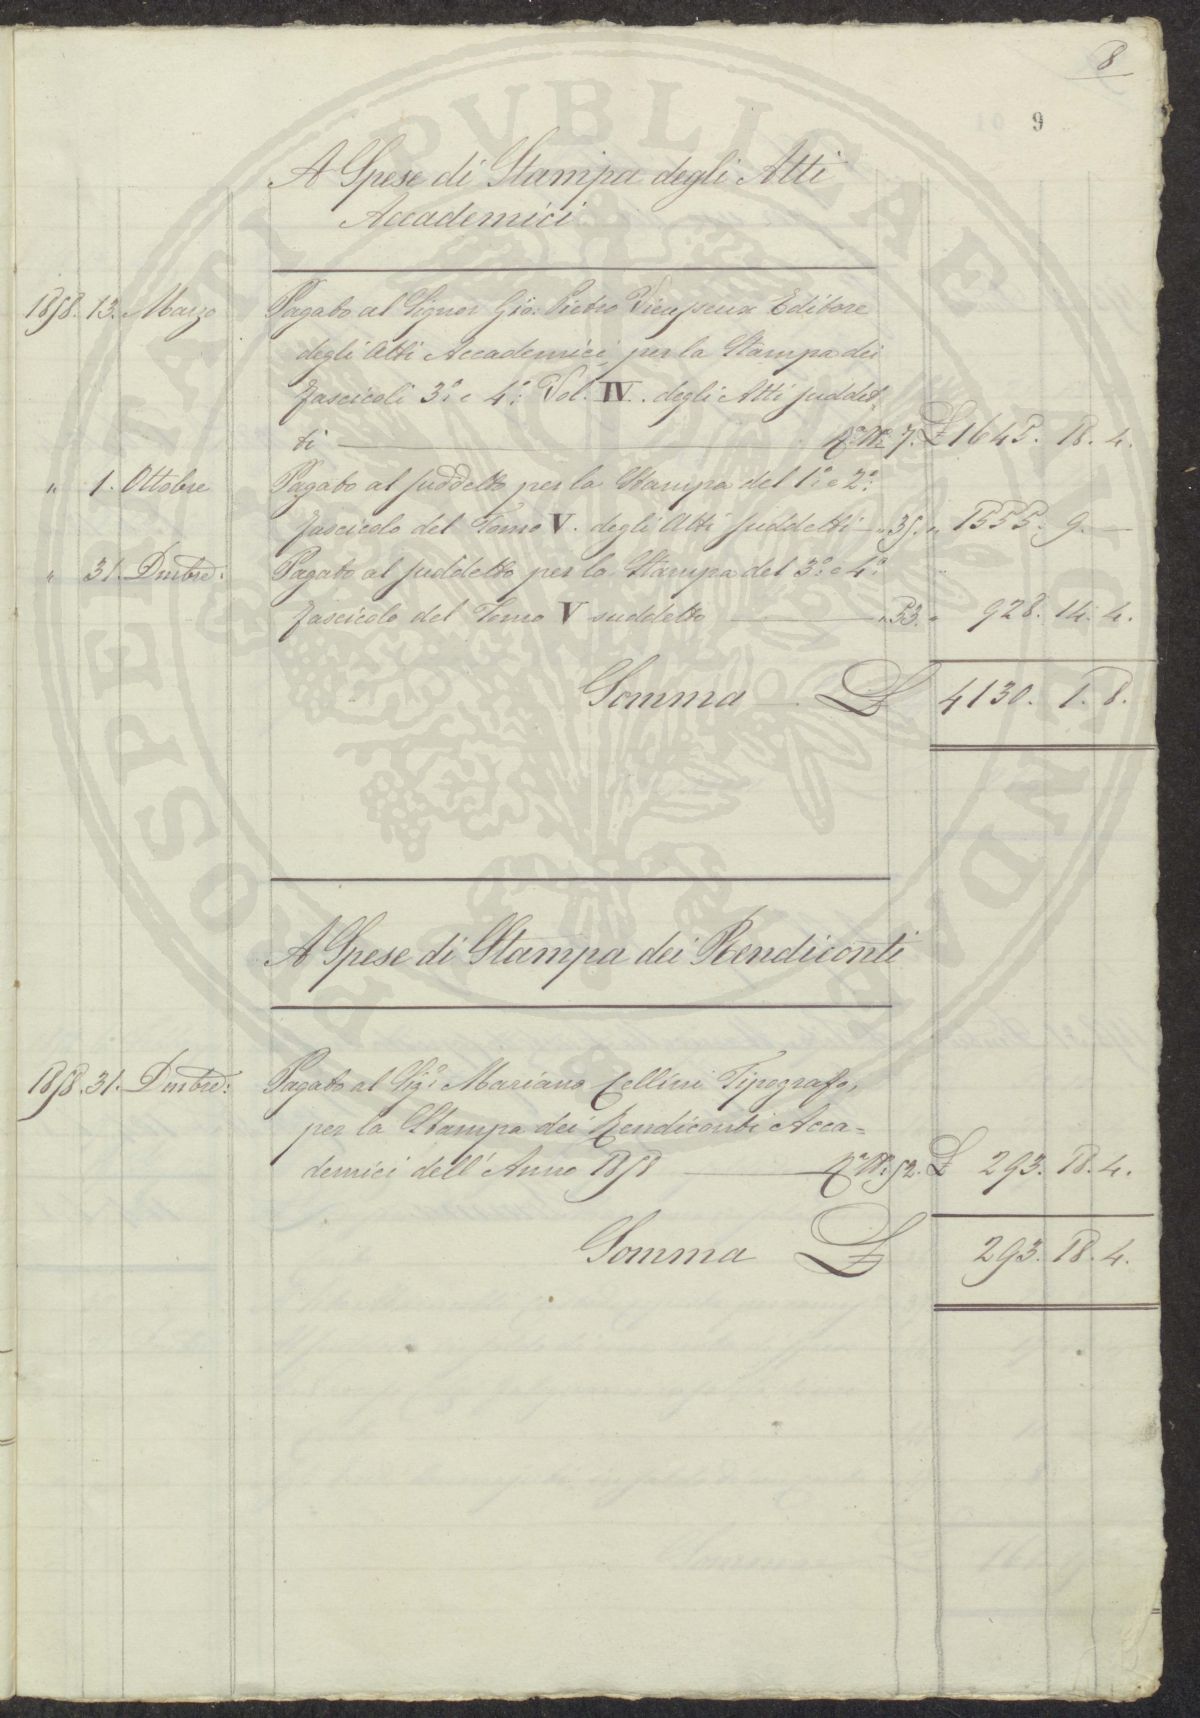 8
9
A Spese di Stampa degli Atti
Accademici
1858. 13. Marzo Pagato al Signor Gio: Pietro Vieusseux Editore
degli Atti Accademici per la Stampa dei
fascicoli 3.° e 4.° Vol. IV. degli Atti suddet-
ti R.a N.° 7. £ 1645. 18. 4.
" 1. Ottobre Pagato al suddetto per la Stampa del 1.° e 2.°
fascicolo del Tomo V. degli Atti suddetti " 35. " 1555. 9. —
" 31. Dmbre: Pagato al suddetto per la Stampa del 3.° e 4.°
fascicolo del Tomo V suddetto " 53. " 928. 14. 4.
Somma £ 4130. 1. 8.
A Spese di Stampa dei Rendiconti
1858. 31. Dmbre: Pagato al Sig.r Mariano Cellini Tipografo,
per la Stampa dei Rendiconti Acca=
demici dell'Anno 1858 R.a N.° 52. £ 293. 18. 4.
Somma £ 293. 18. 4.
PROSPERITATI PVBLICAE AVGENDAE